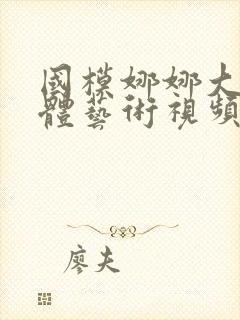 國模娜娜大
體藝術視頻
廖夫